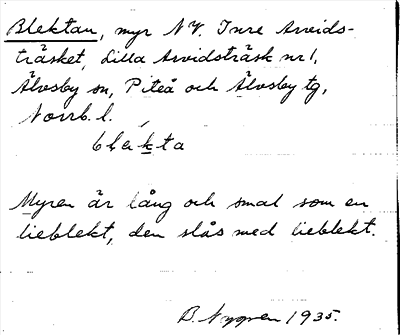 Blektan, myr N.V. Inre Arvids-
träsket, Lilla Arvidsträsk nr 1,
Älvsby sn, Piteå och Älvsby tg,
Norrb. l.
blekta
Myren är lång och smal som en
lieblekt, den slås med lieblekt.
B. Nygren 1935.